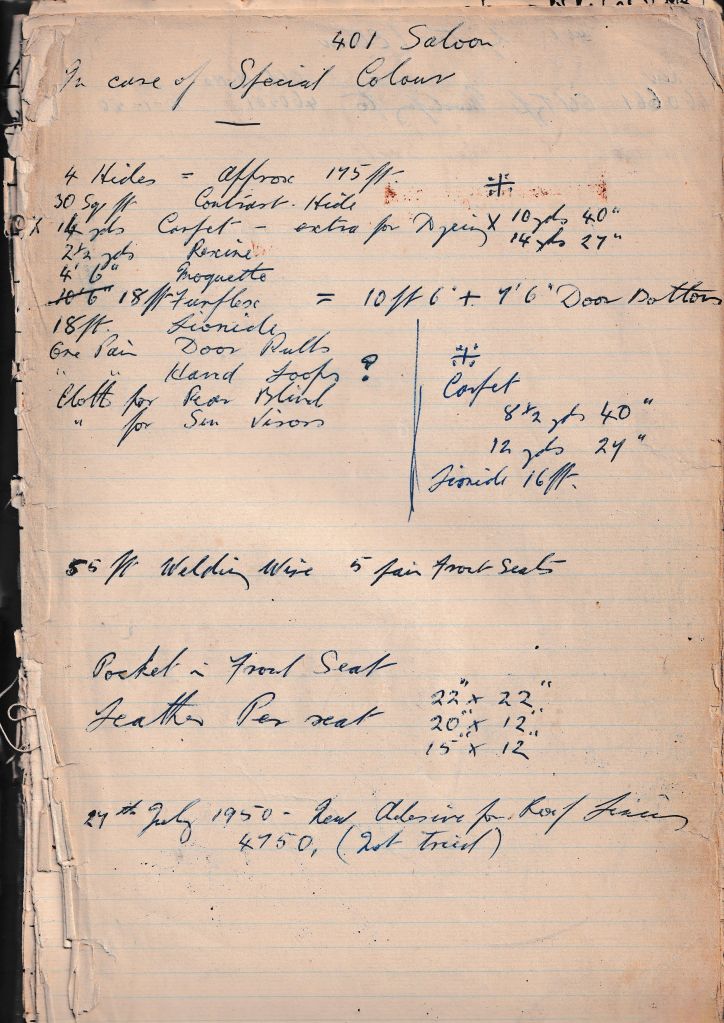 401 Saloon
In case of Special Colour
4 Hides = approx 175 ft.
30 Sq ft Contrast Hide
X 14 yds Carpet - extra for Dyeing X 10 yds 40"
14 yds 27"
2½ yds Rexine
4' 6" Moquette
10'6" 18 ft Furflex = 10 ft 6" + 7' 6" Door Bottoms
18 ft. Lionide
One Pair Door Pulls
" " Hand Loops ?
Cloth for Rear Blind
" for Sun Visors
Carpet
8½ yds 40"
12 yds 27"
Lionide 16 ft.
55 ft Welding Wire 5 pair Front Seats
Pocket in Front Seat
Leather Per seat 22" x 22"
20" x 12"
15" x 12"
27th July 1950 - New Adesive for Roof Lining
4750, (Not Tried)